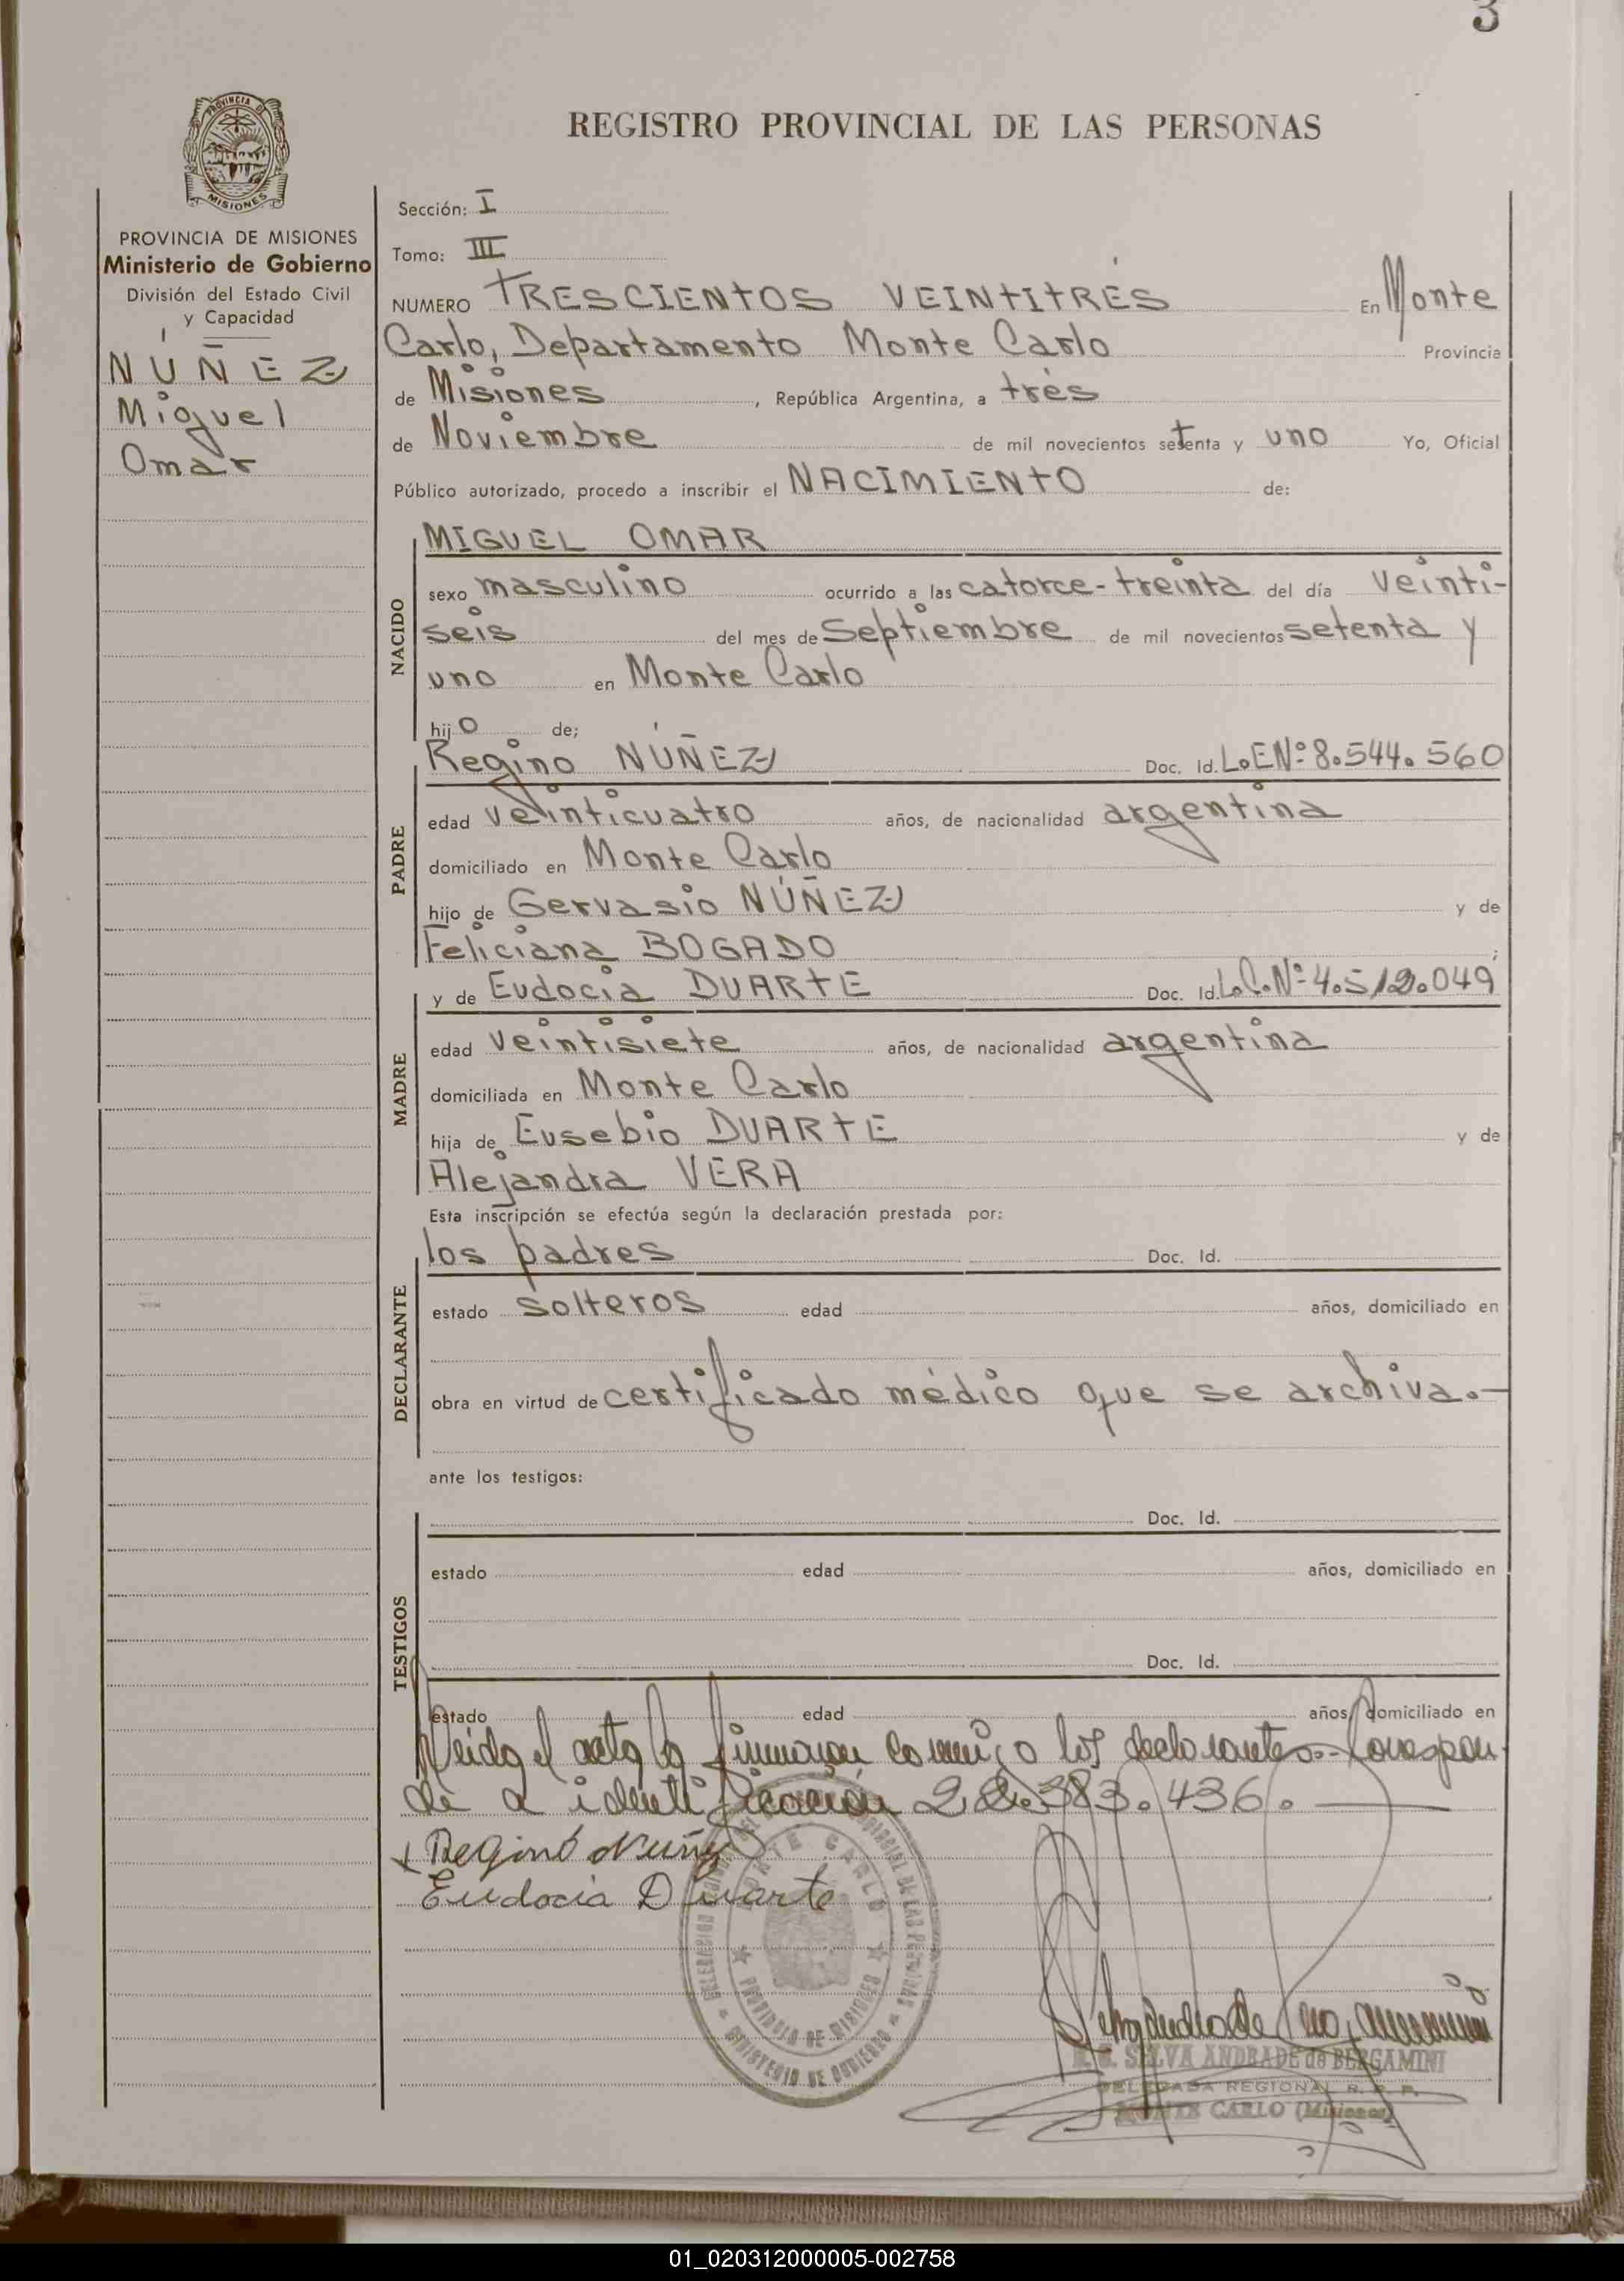 3
PROVINCIA DE
MISIONES
REGISTRO PROVINCIAL DE LAS PERSONAS
PROVINCIA DE MISIONES
Ministerio de Gobierno
División del Estado Civil
y Capacidad
NÚÑEZ
Miguel
Omar
Sección: I
Tomo: III
NUMERO TRESCIENTOS VEINTITRÉS En Monte
Carlo, Departamento Monte Carlo Provincia
de Misiones, República Argentina, a tres
de Noviembre de mil novecientos setenta y uno Yo, Oficial
Público autorizado, procedo a inscribir el NACIMIENTO de:
NACIDO
MIGUEL OMAR
sexo masculino ocurrido a las catorce-treinta del día veinti-
seis del mes de Septiembre de mil novecientos setenta y
uno en Monte Carlo
hijo de;
PADRE
Regino NÚÑEZ Doc. Id. L.EN° 8.544.560
edad veinticuatro años, de nacionalidad argentina
domiciliado en Monte Carlo
hijo de Gervasio NÚÑEZ y de
Feliciana BOGADO ;
MADRE
y de Eudocia DUARTE Doc. Id. L.C.N° 4.512.049
edad veintisiete años, de nacionalidad argentina
domiciliada en Monte Carlo
hija de Eusebio DUARTE y de
Alejandra VERA
Esta inscripción se efectúa según la declaración prestada por:
DECLARANTE
los padres Doc. Id.
estado solteros edad años, domiciliado en
obra en virtud de certificado médico que se archiva.-
ante los testigos:
TESTIGOS
Doc. Id.
estado edad años, domiciliado en
Doc. Id.
estado edad años, domiciliado en
Leida el acta la firmaron conmigo los declarantes.- Correspon-
de a identificación 22.383.436.
x Regino Nuñez
Eudocia Duarte
MONTE CARLO
PROVINCIA DE MISIONES
MINISTERIO DE GOBIERNO
SELVA ANDRADE de BERGAMINI
DELEGADA REGIONAL R. P. P.
MONTE CARLO (Misiones)
01_020312000005-002758